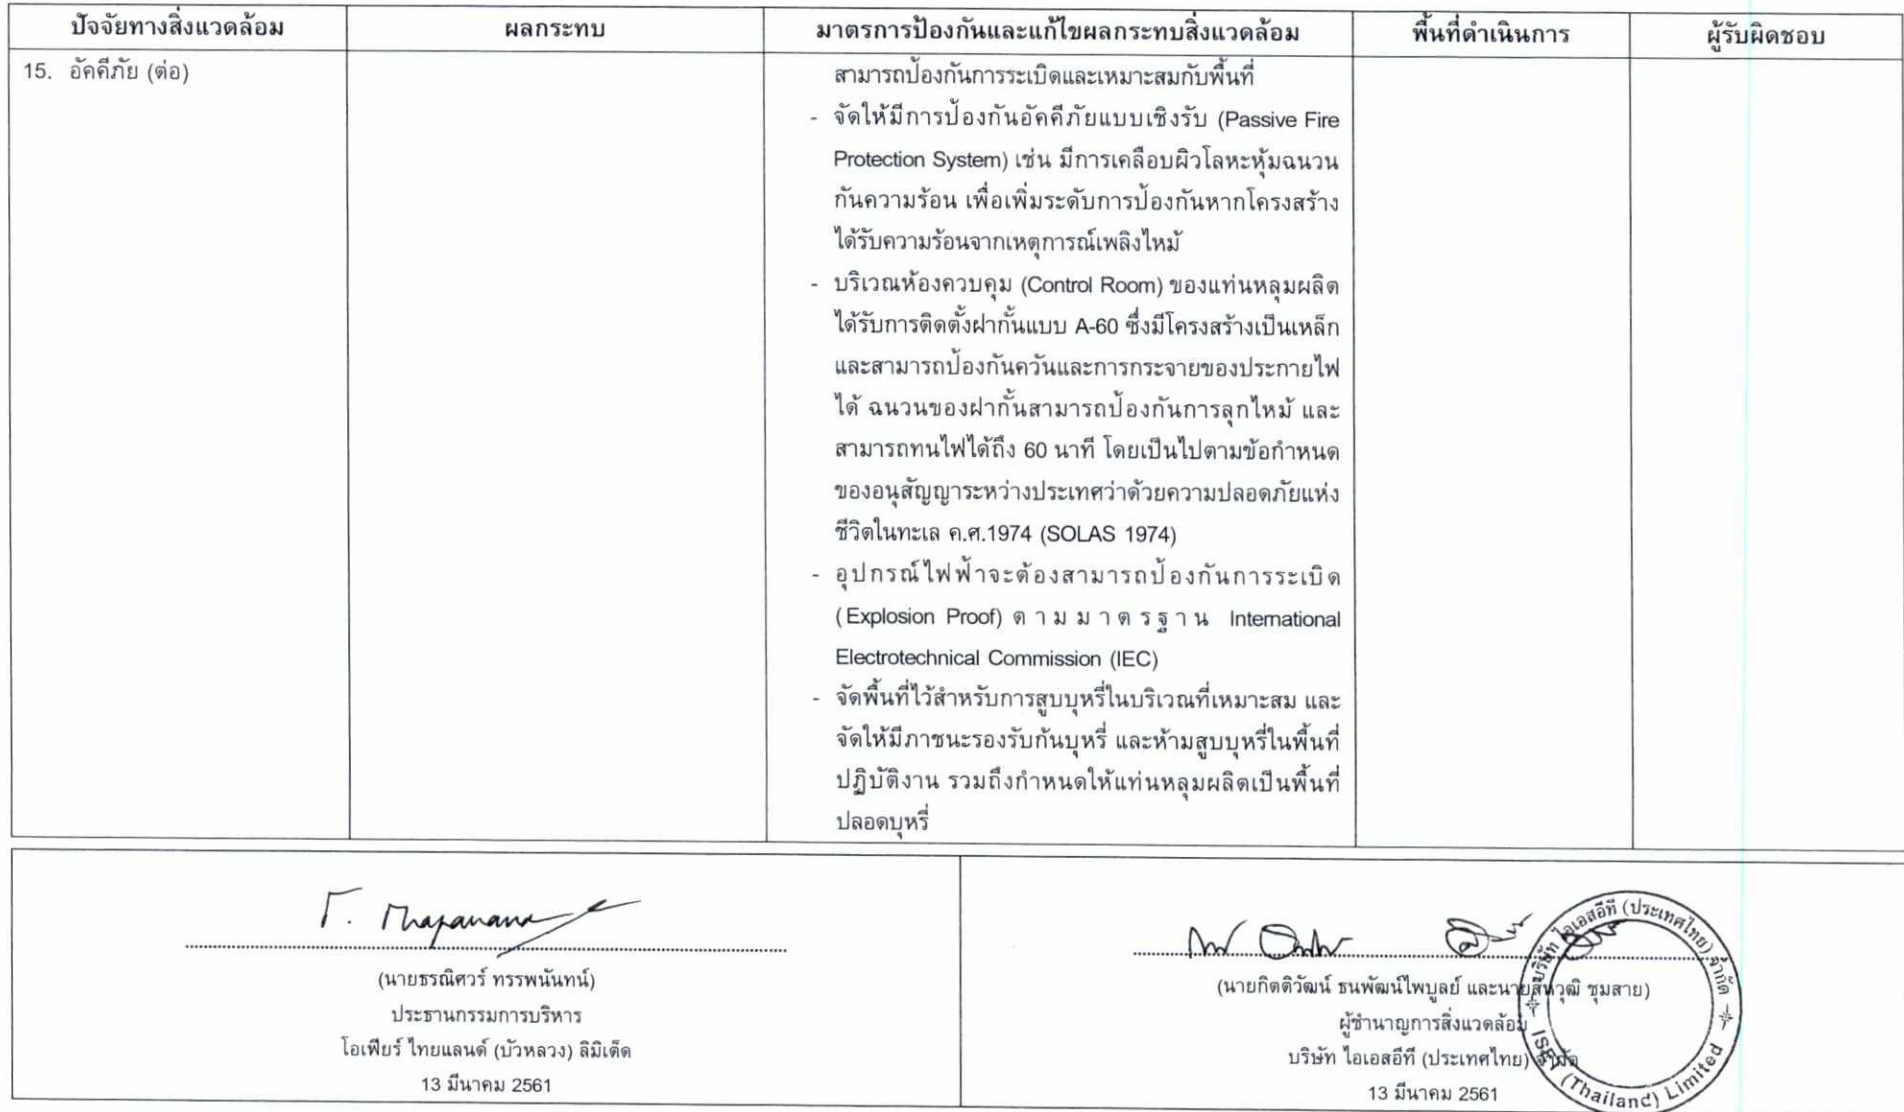 ปัจจัยทางสิ่งแวดล้อม ผลกระทบ มาตรการป้องกันและแก้ไขผลกระทบสิ่งแวดล้อม พื้นที่ดำเนินการ ผู้รับผิดชอบ
15. อัคคีภัย (ต่อ)
สามารถป้องกันการระเบิดและเหมาะสมกับพื้นที่
- จัดให้มีการป้องกันอัคคีภัยแบบเชิงรับ (Passive Fire
Protection System) เช่น มีการเคลือบผิวโลหะหุ้มฉนวน
กันความร้อน เพื่อเพิ่มระดับการป้องกันหากโครงสร้าง
ได้รับความร้อนจากเหตุการณ์เพลิงไหม้
- บริเวณห้องควบคุม (Control Room) ของแท่นหลุมผลิต
ได้รับการติดตั้งฝากั้นแบบ A-60 ซึ่งมีโครงสร้างเป็นเหล็ก
และสามารถป้องกันควันและการกระจายของประกายไฟ
ได้ ฉนวนของฝากั้นสามารถป้องกันการลุกไหม้ และ
สามารถทนไฟได้ถึง 60 นาที โดยเป็นไปตามข้อกำหนด
ของอนุสัญญาระหว่างประเทศว่าด้วยความปลอดภัยแห่ง
ชีวิตในทะเล ค.ศ.1974 (SOLAS 1974)
- อุปกรณ์ไฟฟ้าจะต้องสามารถป้องกันการระเบิด
(Explosion Proof) ตามมาตรฐาน International
Electrotechnical Commission (IEC)
- จัดพื้นที่ไว้สำหรับการสูบบุหรี่ในบริเวณที่เหมาะสม และ
จัดให้มีภาชนะรองรับก้นบุหรี่ และห้ามสูบบุหรี่ในพื้นที่
ปฏิบัติงาน รวมถึงกำหนดให้แท่นหลุมผลิตเป็นพื้นที่
ปลอดบุหรี่
(นายธรณิศวร์ ทรรพนันทน์)
ประธานกรรมการบริหาร
โอเฟียร์ ไทยแลนด์ (บัวหลวง) ลิมิเต็ด
13 มีนาคม 2561
(นายกิตติวัฒน์ ธนพัฒน์ไพบูลย์ และนายสิหวุฒิ ชุมสาย)
ผู้ชำนาญการสิ่งแวดล้อม
บริษัท ไอเอสอีที (ประเทศไทย) จำกัด
13 มีนาคม 2561
บริษัท ไอเอสอีที (ประเทศไทย) จำกัด
ISET (Thailand) Limited